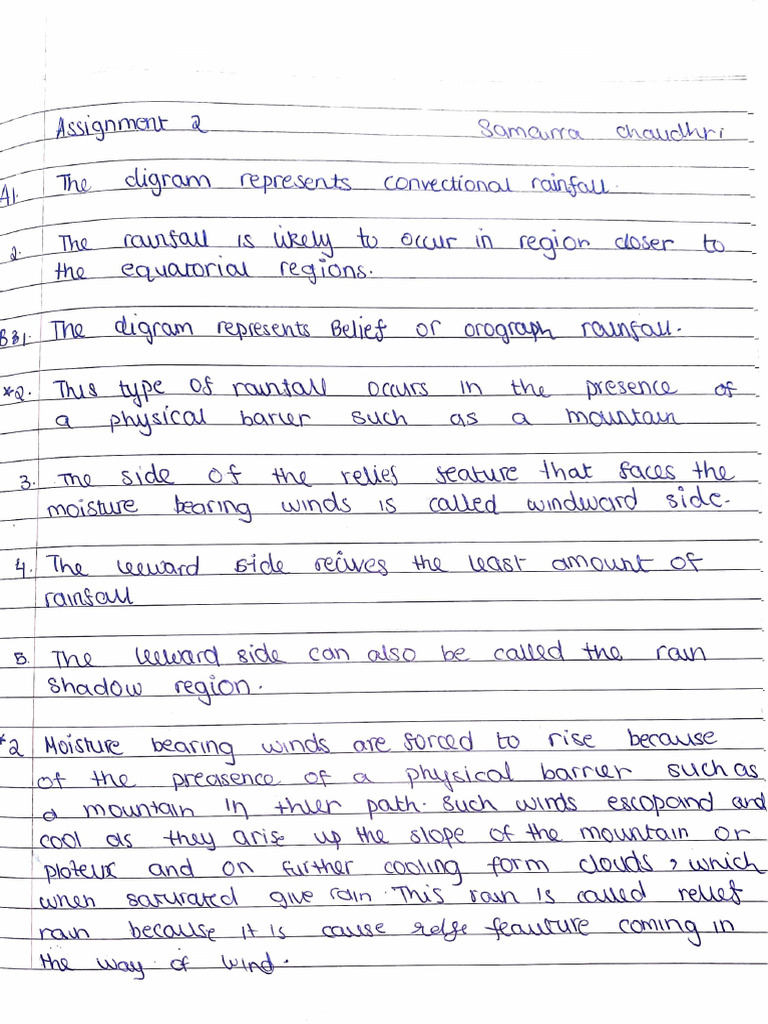 Assignment 2 Samairra chaudhri
A1. The digram represents convectional rainfall.
2. The rainfall is likely to occur in region closer to
the equatorial regions.
B31. The digram represents Belief or orograph rainfall.
*2. This type of rainfall occurs in the presence of
a physical barier such as a mountain
3. The side of the relief feature that faces the
moisture bearing winds is called windward side.
4. The leeward side recives the least amount of
rainfall
5. The leeward side can also be called the rain
shadow region.
*2 Moisture bearing winds are forced to rise because
of the preasence of a physical barrier such as
a mountain in thier path. Such winds escopand and
cool as they arise up the slope of the mountain or
plateux and on further cooling form clouds, which
when saturated give rain. This rain is called relief
rain because it is cause feauture coming in
the way of wind.